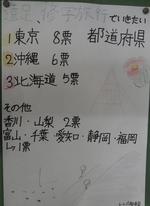 遠足、修学旅行で行きたい
都道府県
1東京 8票
2沖縄 6票
3北海道 5票
その他
香川・山梨 2票
富山・千葉・愛知・静岡・福岡
1票